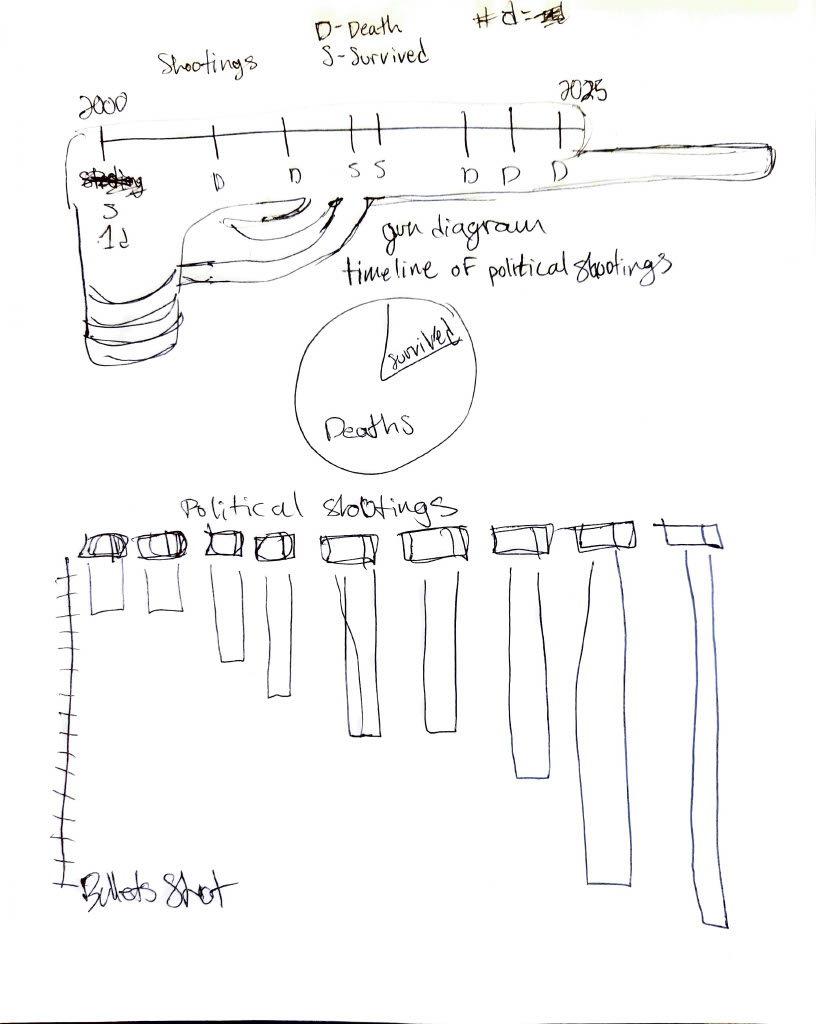 D-Death
# d =
Shootings
S-Survived
2000
2025
D
D
S
S
D
D
D
S
1d
gun diagram
timeline of political shootings
Survived
Deaths
Political shootings
Bullets Shot